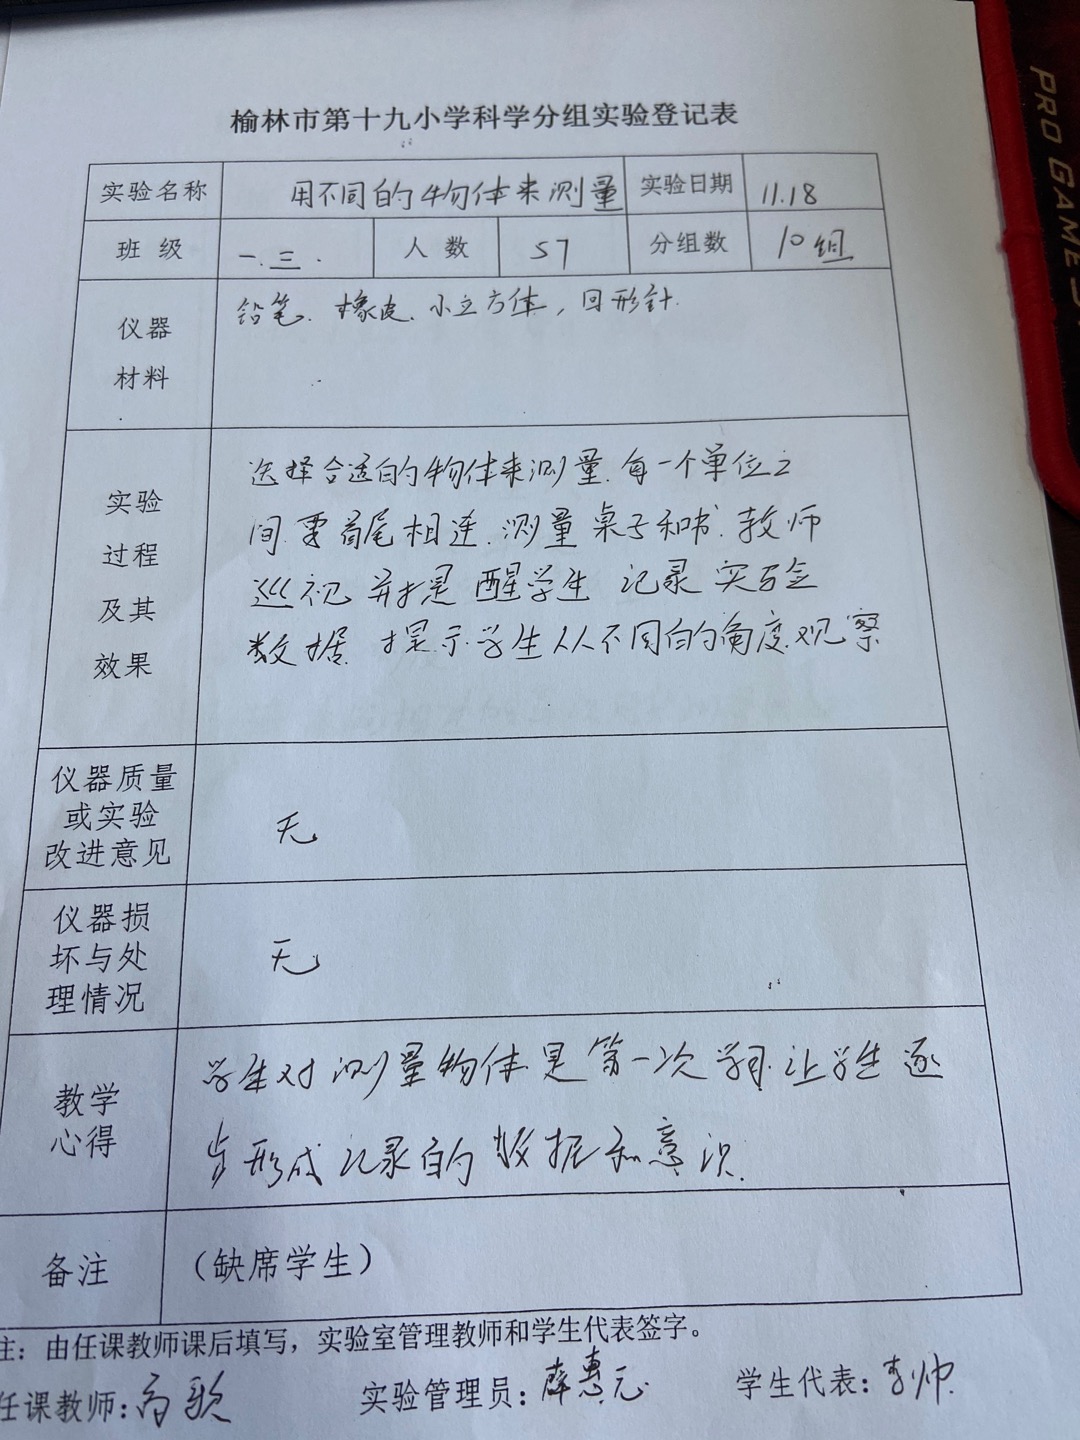 榆林市第十九小学科学分组实验登记表
实验名称 用不同的物体来测量 实验日期 11.18
班级 一.三. 人数 57 分组数 10组
仪器
材料
铅笔、橡皮、小立方体，回形针.
实验
过程
及其
效果
选择合适的物体来测量.每一个单位之
间要首尾相连.测量桌子和书.教师
巡视并提醒学生记录实验
数据.提示学生从不同的角度观察
仪器质量
或实验
改进意见
无
仪器损
坏与处
理情况
无
教学
心得
学生对测量物体是第一次学习.让学生逐
步形成记录的数据和意识.
备注 （缺席学生）
注：由任课教师课后填写，实验室管理教师和学生代表签字。
任课教师：高歌 实验管理员：薛惠元 学生代表：李帅
PRO GAMES